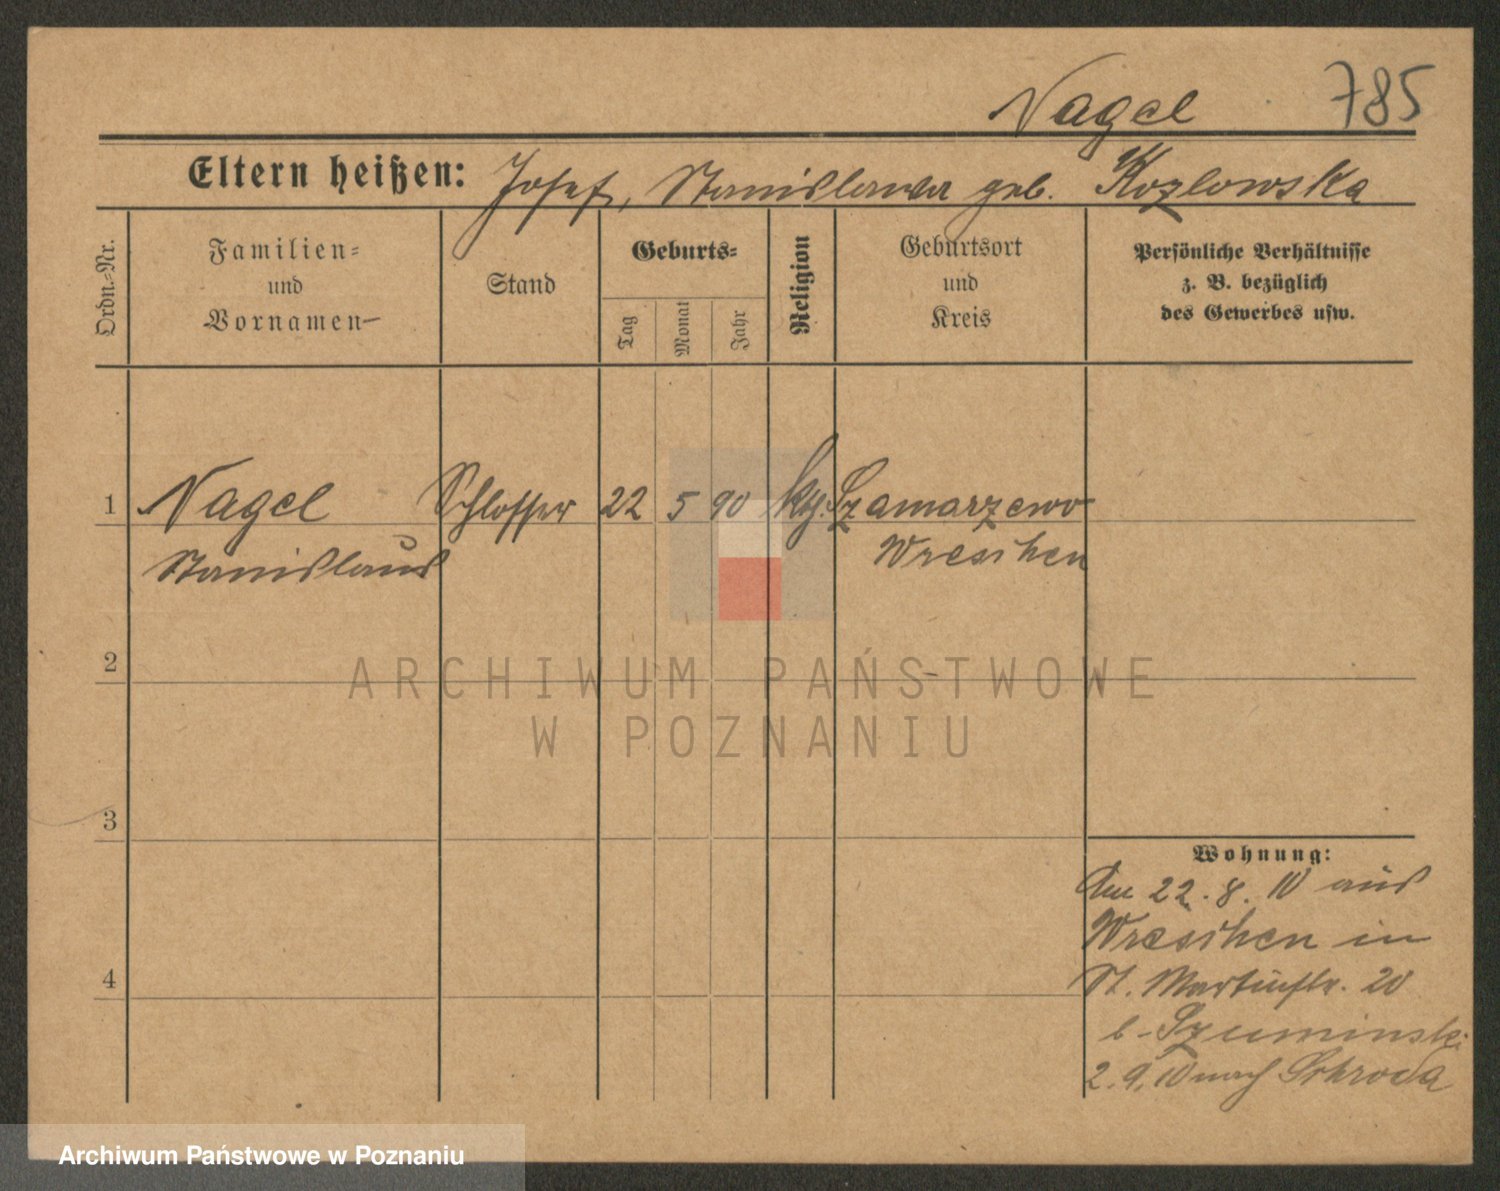 Nagel 785
Eltern heißen: Josef, Stanislawa geb. Kozlowska
Ordn.-Nr.
Familien-
und
Vornamen
Stand
Geburts-
Tag
Monat
Jahr
Religion
Geburtsort
und
Kreis
Persönliche Verhältnisse
z. B. bezüglich
des Gewerbes usw.
1 Nagel Schlosser 22 5 90 kth. Szamarzewo
Stanislaus Wreschen
2
ARCHIWUM PAŃSTWOWE
W POZNANIU
3
4
Wohnung:
Am 22. 8. 10 aus
Wreschen in
St. Martinstr. 20
b. Szuminski
2. 9. 10 nach Schroda
Archiwum Państwowe w Poznaniu